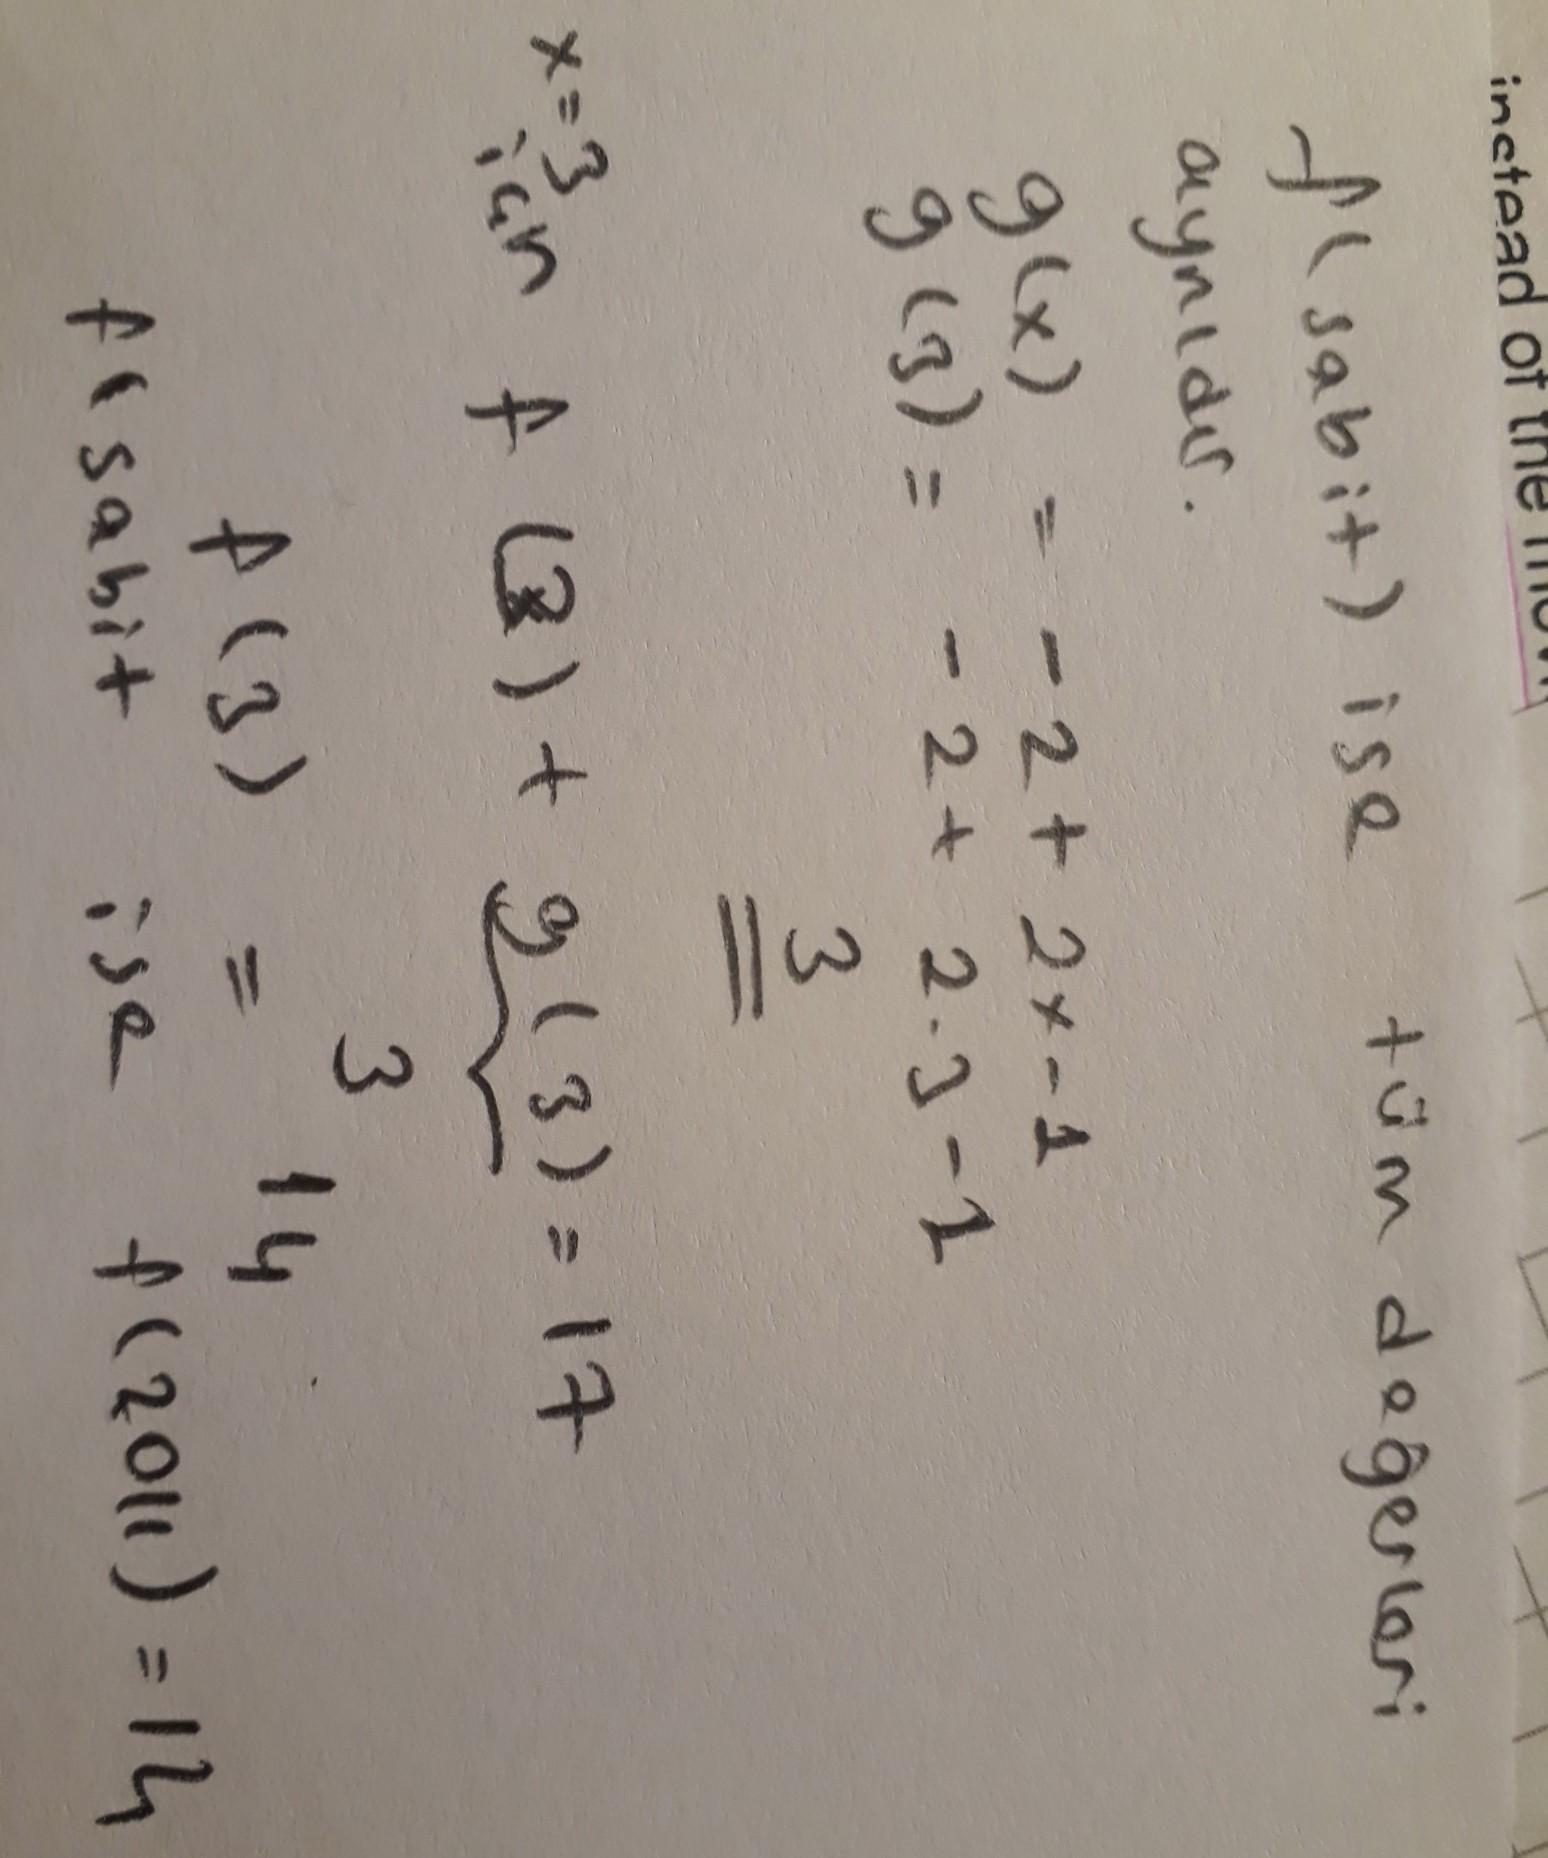 instead of the
f(sabit) ise tüm değerleri
aynıdır.
g(x) = -2+2x-1
g(3) = -2+2.3-1
3
x=3 için f(3)+g(3)=17
3
f(3) = 14
f(sabit ise f(2011)=14